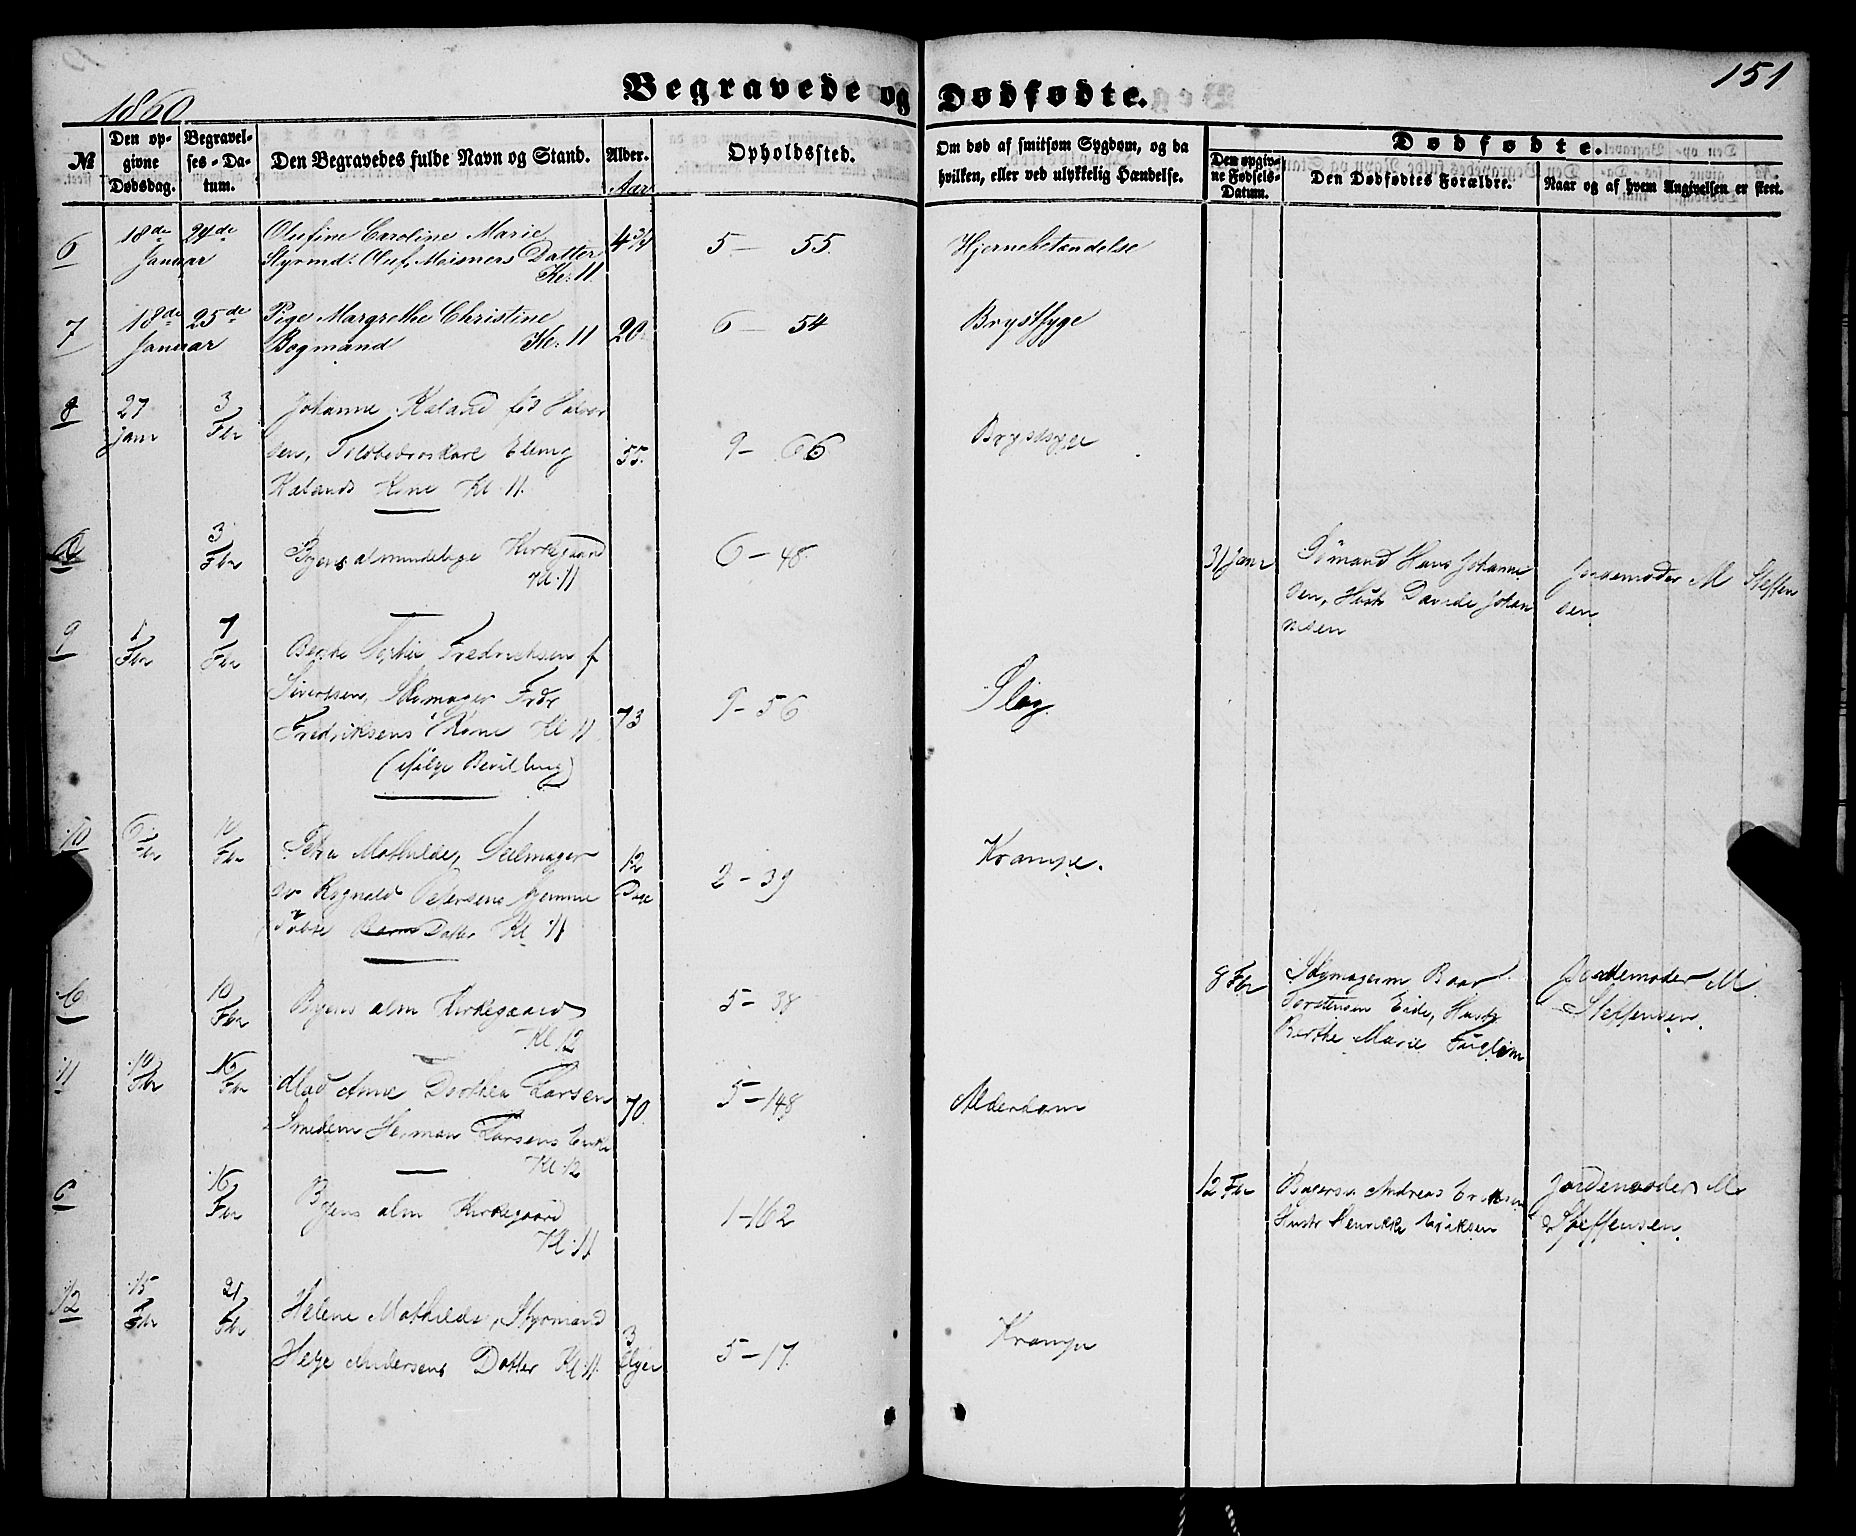 1860
Begravede og Dødfødte.
151
№
Den opgivne Dødsdag.
Begravelses-Datum.
Den Begravedes fulde Navn og Stand.
Alder.
Aar
Opholdssted.
Om død af smitsom Sygdom, og da hvilken, eller ved ulykkelig Hændelse.
Dødfødte.
Den opgivne Fødsels-Datum.
Den Dødfødtes Forældre.
Naar og af hvem Angivelsen er skeet.
6 18de Januar 24de Olufine Caroline Marie
Styrmd: Oluf Meisners Datter
Kl: 11. 4 3/4 5 — 55. Hjernebetændelse
7 18de Januar 25de Pige Margrethe Christine
Bogmand Kl: 11 20. 6 — 54 Brystsyge
8 27 Janr 3 Fbr Johanne Kaland fød Halvor
sen, Kalands Kone Kl 11. 55. 9 — 66 Brystsyge
3 Fbr Byens almindelige Kirkegaard
Kl 11 6 — 48
31 Janr Sömand Hans Johanne
sen, Hustr Johan
nesen
Jordemoder M Steffen
sen
9 Fbr 7 Fbr Fredriksen f
Sivertsen, Skomager Fredr
Fredriksens Kone Kl 11
(ifölge Bevilling) 73 9 — 56 Slag.
10 6 Fbr 10 Fbr Petra Mathilde, Seilmager
Petersens hjemme
döbte Datter Kl 11 12 Dage 2 — 39 Krampe.
10 Fbr Byens alm Kirkegaard
Kl 12 5 — 38
8 Fbr
Torstensen Eide, Hustr
Berthe Marie
Jordemoder M
Steffensen.
11 10 Fbr 16 Fbr Mad Anne Dorthea Larsen
Smedem Herman Larsens Enke
Kl 12 70. 5 — 148 Alderdom
16 Fbr Byens alm Kirkegaard
Kl 11 1-162
12 Fbr Andreas Eriksen
Hustr Henrikke Eriksen
Jordemoder M
Steffensen.
12 15 Fbr 21 Fbr Helene Mathilde, Styrmand
Helge Andersens Datter Kl 11. 3 Uger 5 — 17. Krampe